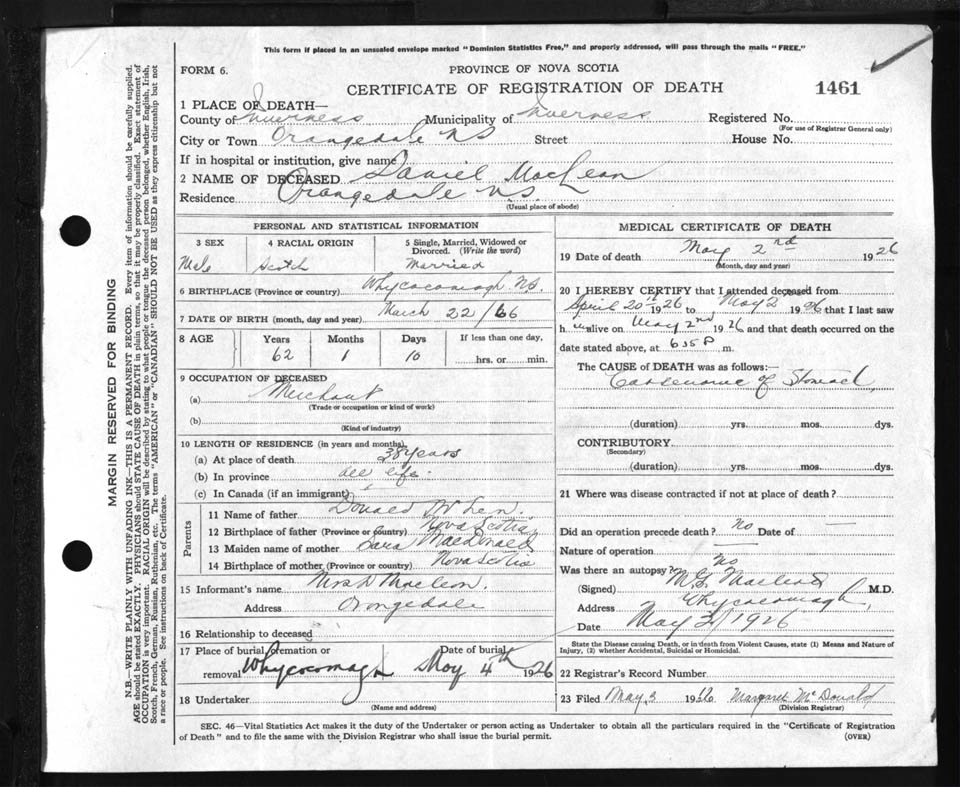 This form if placed in an unsealed envelope marked "Dominion Statistics Free," and properly addressed, will pass through the mails "FREE."
FORM 6.
PROVINCE OF NOVA SCOTIA
CERTIFICATE OF REGISTRATION OF DEATH
1461
1 PLACE OF DEATH—
County of Inverness Municipality of Inverness Registered No.
(For use of Registrar General only)
City or Town Orangedale NS Street House No.
If in hospital or institution, give name
2 NAME OF DECEASED Daniel MacLean
Residence Orangedale N.S.
(Usual place of abode)
PERSONAL AND STATISTICAL INFORMATION
3 SEX 4 RACIAL ORIGIN 5 Single, Married, Widowed or Divorced. (Write the word)
Male Scotch Married
6 BIRTHPLACE (Province or country) Whycocomagh N.S.
7 DATE OF BIRTH (month, day and year) March 22/66
8 AGE Years Months Days If less than one day,
62 1 10 hrs. or min.
9 OCCUPATION OF DECEASED
(a) Merchant
(Trade or occupation or kind of work)
(b)
(Kind of industry)
10 LENGTH OF RESIDENCE (in years and months)
(a) At place of death 38 years
(b) In province all life.
(c) In Canada (if an immigrant)
Parents
11 Name of father Donald
12 Birthplace of father (Province or country) Nova Scotia
13 Maiden name of mother MacDonald
14 Birthplace of mother (Province or country) Nova Scotia
15 Informant's name Mrs D Maclean.
Address Orangedale
16 Relationship to deceased
17 Place of burial, cremation or removal Whycocomagh Date of burial May 4th 1926
18 Undertaker
(Name and address)
MEDICAL CERTIFICATE OF DEATH
19 Date of death May 2nd 1926
(Month, day and year)
20 I HEREBY CERTIFY that I attended deceased from
April 20th 1926 to May 2 1926 that I last saw
h im alive on May 2nd 1926 and that death occurred on the
date stated above, at 635 P m.
The CAUSE of DEATH was as follows:—
of Stomach
(duration) yrs. mos. dys.
CONTRIBUTORY
(Secondary)
(duration) yrs. mos. dys.
21 Where was disease contracted if not at place of death?
Did an operation precede death? No Date of
Nature of operation
Was there an autopsy? No
(Signed) Macleod M.D.
Address Whycocomagh
Date May 3/1926
State the Disease causing Death, or in death from Violent Causes, state (1) Means and Nature of
Injury, (2) whether Accidental, Suicidal or Homicidal.
22 Registrar's Record Number
23 Filed May 3 1926 Margaret McDonald
(Division Registrar)
SEC. 46—Vital Statistics Act makes it the duty of the Undertaker or person acting as Undertaker to obtain all the particulars required in the "Certificate of Registration
of Death" and to file the same with the Division Registrar who shall issue the burial permit.
(OVER)
MARGIN RESERVED FOR BINDING
N.B.—WRITE PLAINLY WITH UNFADING INK—THIS IS A PERMANENT RECORD. Every item of information should be carefully supplied.
AGE should be stated EXACTLY. PHYSICIANS should STATE CAUSE OF DEATH in plain terms, so that it may be properly classified. Exact statement of
OCCUPATION is very important. RACIAL ORIGIN will be described by stating to what people or tongue the deceased person belonged, whether English, Irish,
Scotch, French, German, Russian, Ruthenian, etc. The terms "AMERICAN" or "CANADIAN" SHOULD NOT BE USED as they express citizenship but not
a race or people. See instructions on back of Certificate.